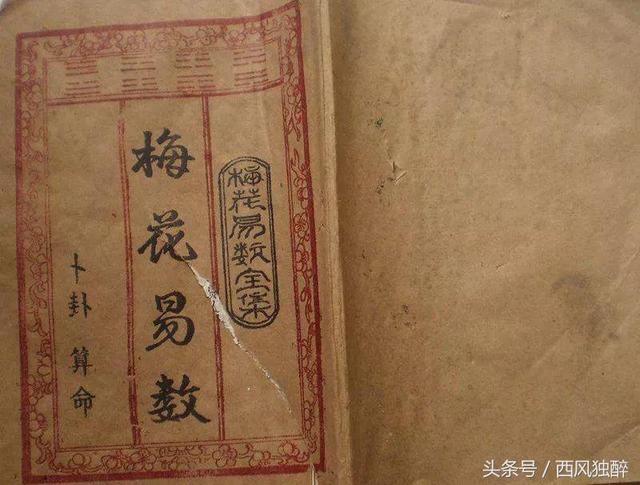 梅花易数全集
梅花易数
卜卦 算命
头条号 / 西风独醉